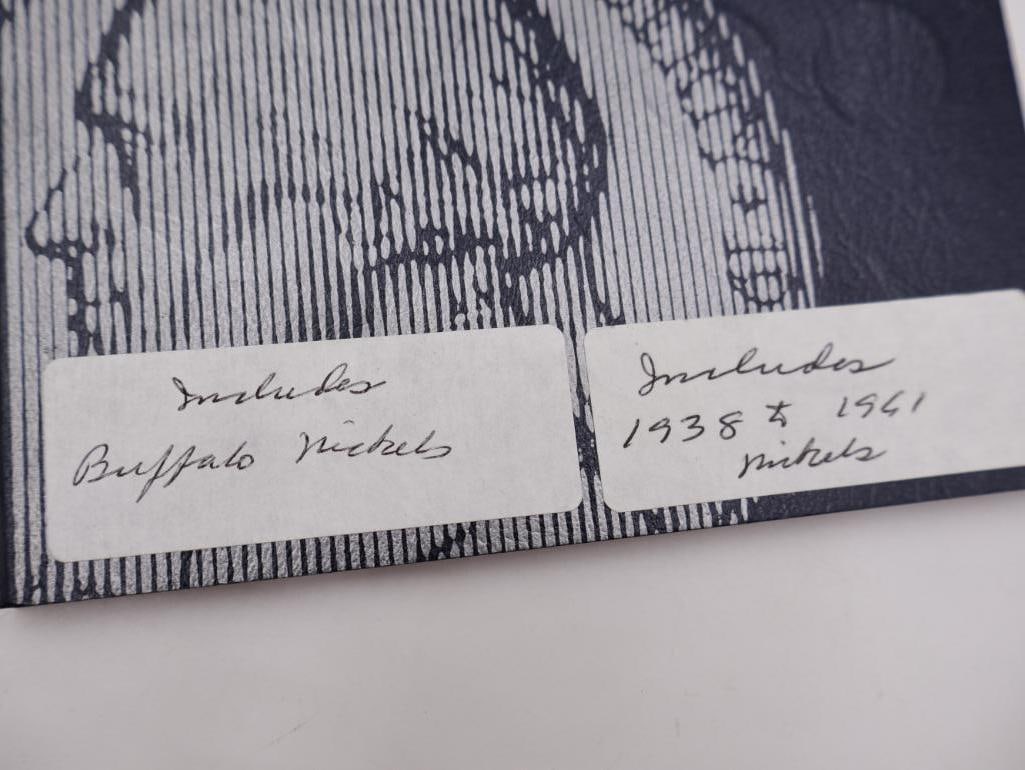 Includes
Buffalo Nickels
Includes
1938 to 1961
Nickels